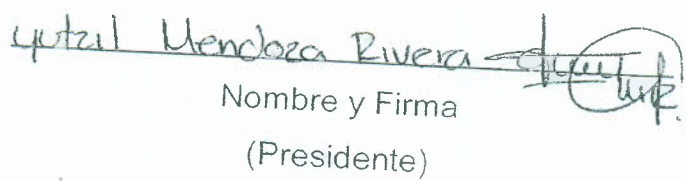 yutzil Mendoza Rivera
Nombre y Firma
(Presidente)